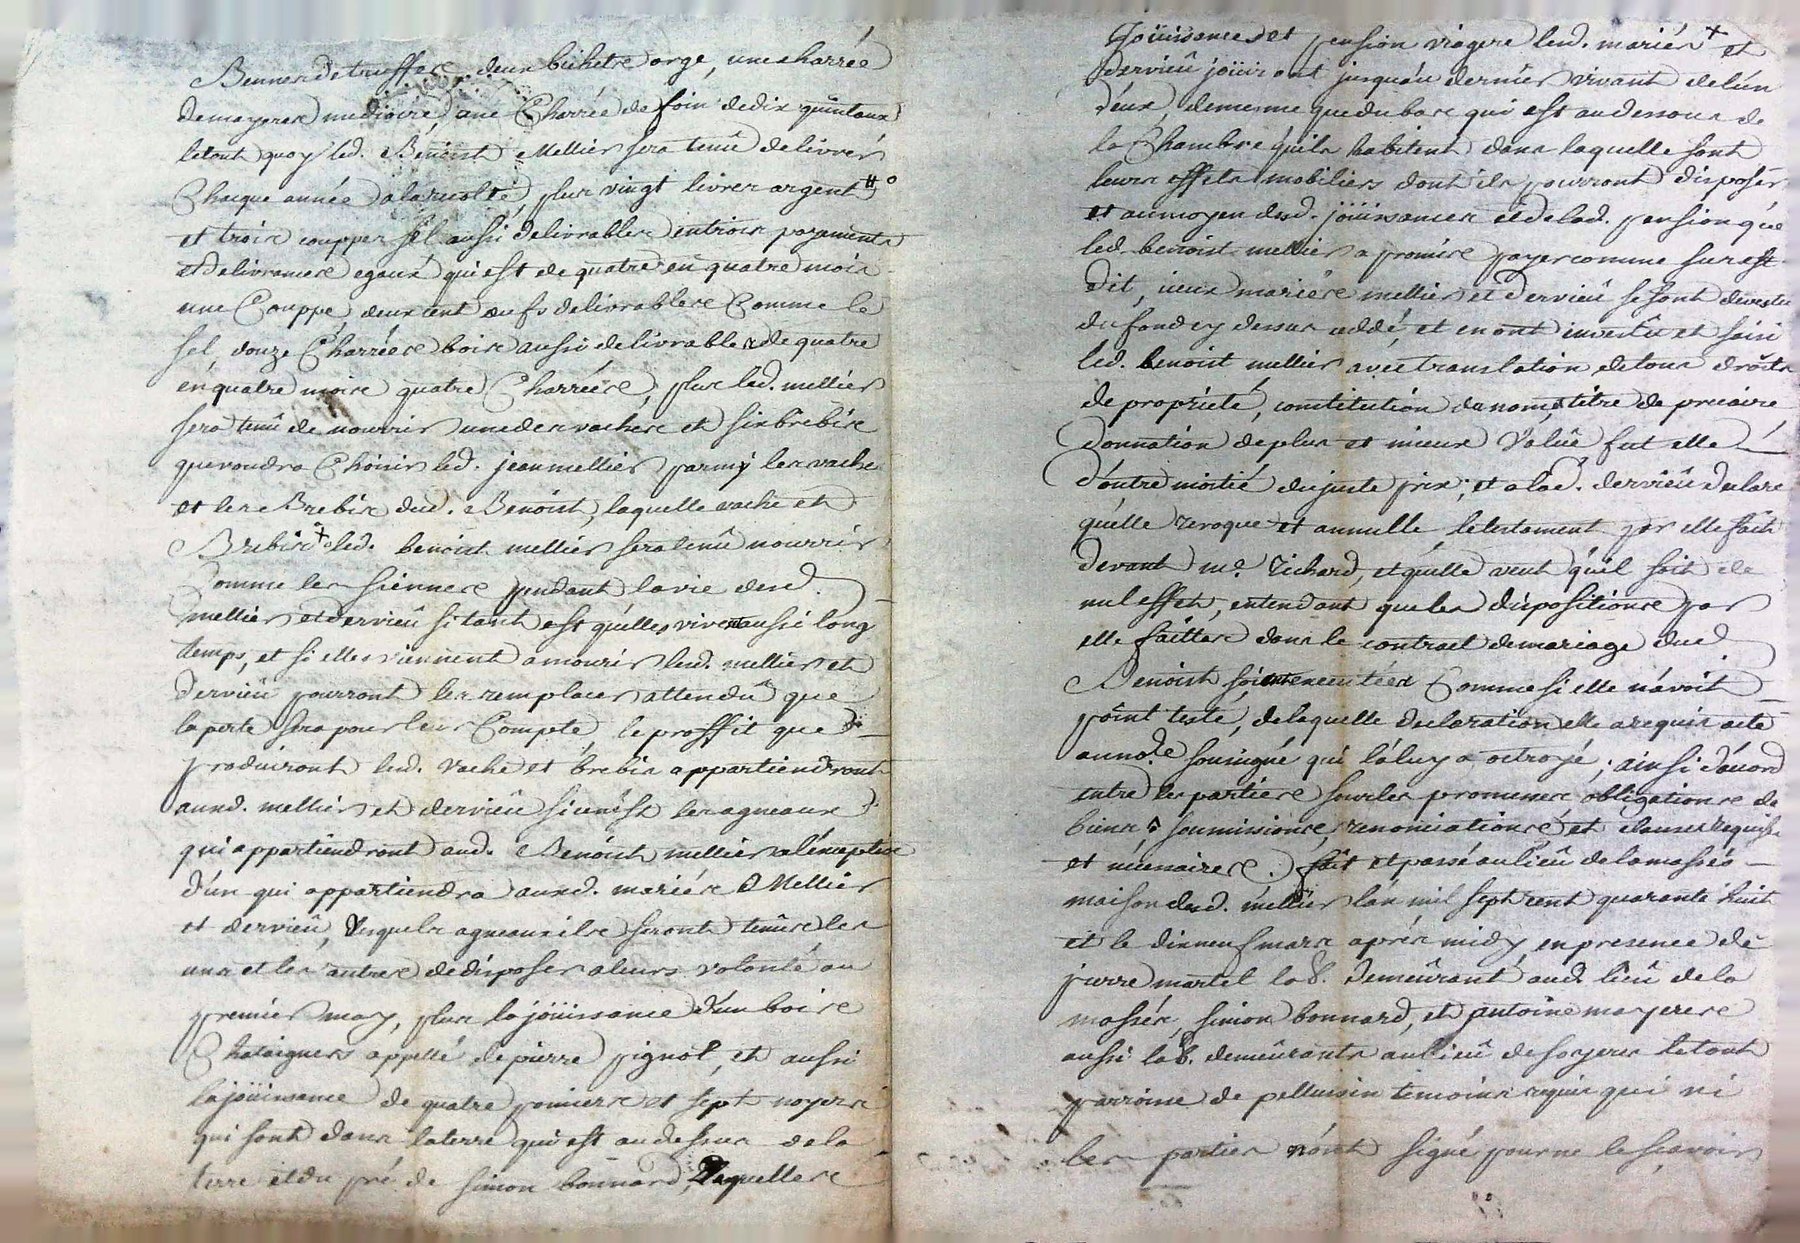 Bennes de truffes, deux bichetre orge, une charrée
de mayeres mediocre, une Charrée de foin de dix quintaux
letout quoy led. Benoist Mellier sera tenû delivrer
Chaque année a la recolte, plus vingt livres argent #°
et trois couppes sel aussi delivrables en trois payements
et delivrances egaux qui est de quatre en quatre mois
une Couppe, deux cent oeufs delivrables Comme le
sel, douze Charrées bois aussi delivrables de quatre
en quatre mois quatre Charrées, plus led. mellier
sera tenû de nourrir une des vaches et six brebis
que voudra Choisir led. jean mellier parmy les vache
et les Brebis dud. Benoist, laquelle vache et
Brebis + led. benoist mellier sera tenû nourrir
Comme les siennes pendant la vie desd.
mellier et dervieû si tant est qu'elles vivent aussi long
temps, et si elles viennent a mourir lesd. mellier et
dervieû pourront les remplacer attendû que
la perte sera pour leur Compte, le proffit que
produiront lesd. vache et brebis appartiendront
auxd. mellier et dervieû si ce n'est les agneaux
qui appartiendront aud. Benoist mellier a l'exception
d'un qui appartiendra auxd. mariés Mellier
et dervieû, lesquels agneaux ils seront tenûs les
uns et les autres de disposer a leurs volonté au
premier may, plus la joüissance d'un bois
Chataigners appellé de pierre pignol, et aussi
la joüissance de quatre pomiers et sept noyers
qui sont dans la terre qui est au dessus de la
terre et du pré de simon bonnard, desquelles
Joüissances et pension viagere lesd. mariés + et
dervieû joüiront jusqu'au dernier vivant de l'un
d'eux, de mesme que du bas qui est au dessous de
la Chambre qu'ils habitent dans laquelle sont
leurs effets mobiliers dont ils pourront disposer
et au moyen desd. joüissances et de lad. pension que
led. benoist mellier a promis payer comme sus est
dit, iceux mariés mellier et dervieû se sont devestu
du fond cy dessus ceddé, et en ont investû et saisi
led. benoist mellier avec translation de tous droits
de proprieté, constitution du nom et titre de precaire,
donnation de plus et mieux Value fut elle
d'outre moitié du juste prix; et a lad. dervieû declaré
qu'elle revoque et annulle, le testament par elle fait
devant me. richard, et qu'elle veut qu'il soit de
nul effet, entendant que les dispositions par
elle faittes dans le contract de mariage dud.
Benoist soient executées Comme si elle n'avoit
point testé, de laquelle declaration elle a requis acte
au no.re soussigné qui l'a luy a octroyé; ainsi d'acord
entre les parties sous les promesses obligations de
biens soumissions, renonciations et clauses requise
et necessaires. fait et passé au lieû de la massés
maison dud. mellier l'an mil sept cent quarante huit
et le dix neuf mars aprés midy, en presence de
pierre martel lab. demeûrant aud. lieû de la
massés, simon bonnard, et antoine mayeres
aussi lab. demeûrants au lieû de soyeres letout
parroisse de pellussin temoins requis qui ni
les parties n'ont signé pour ne le sçavoir